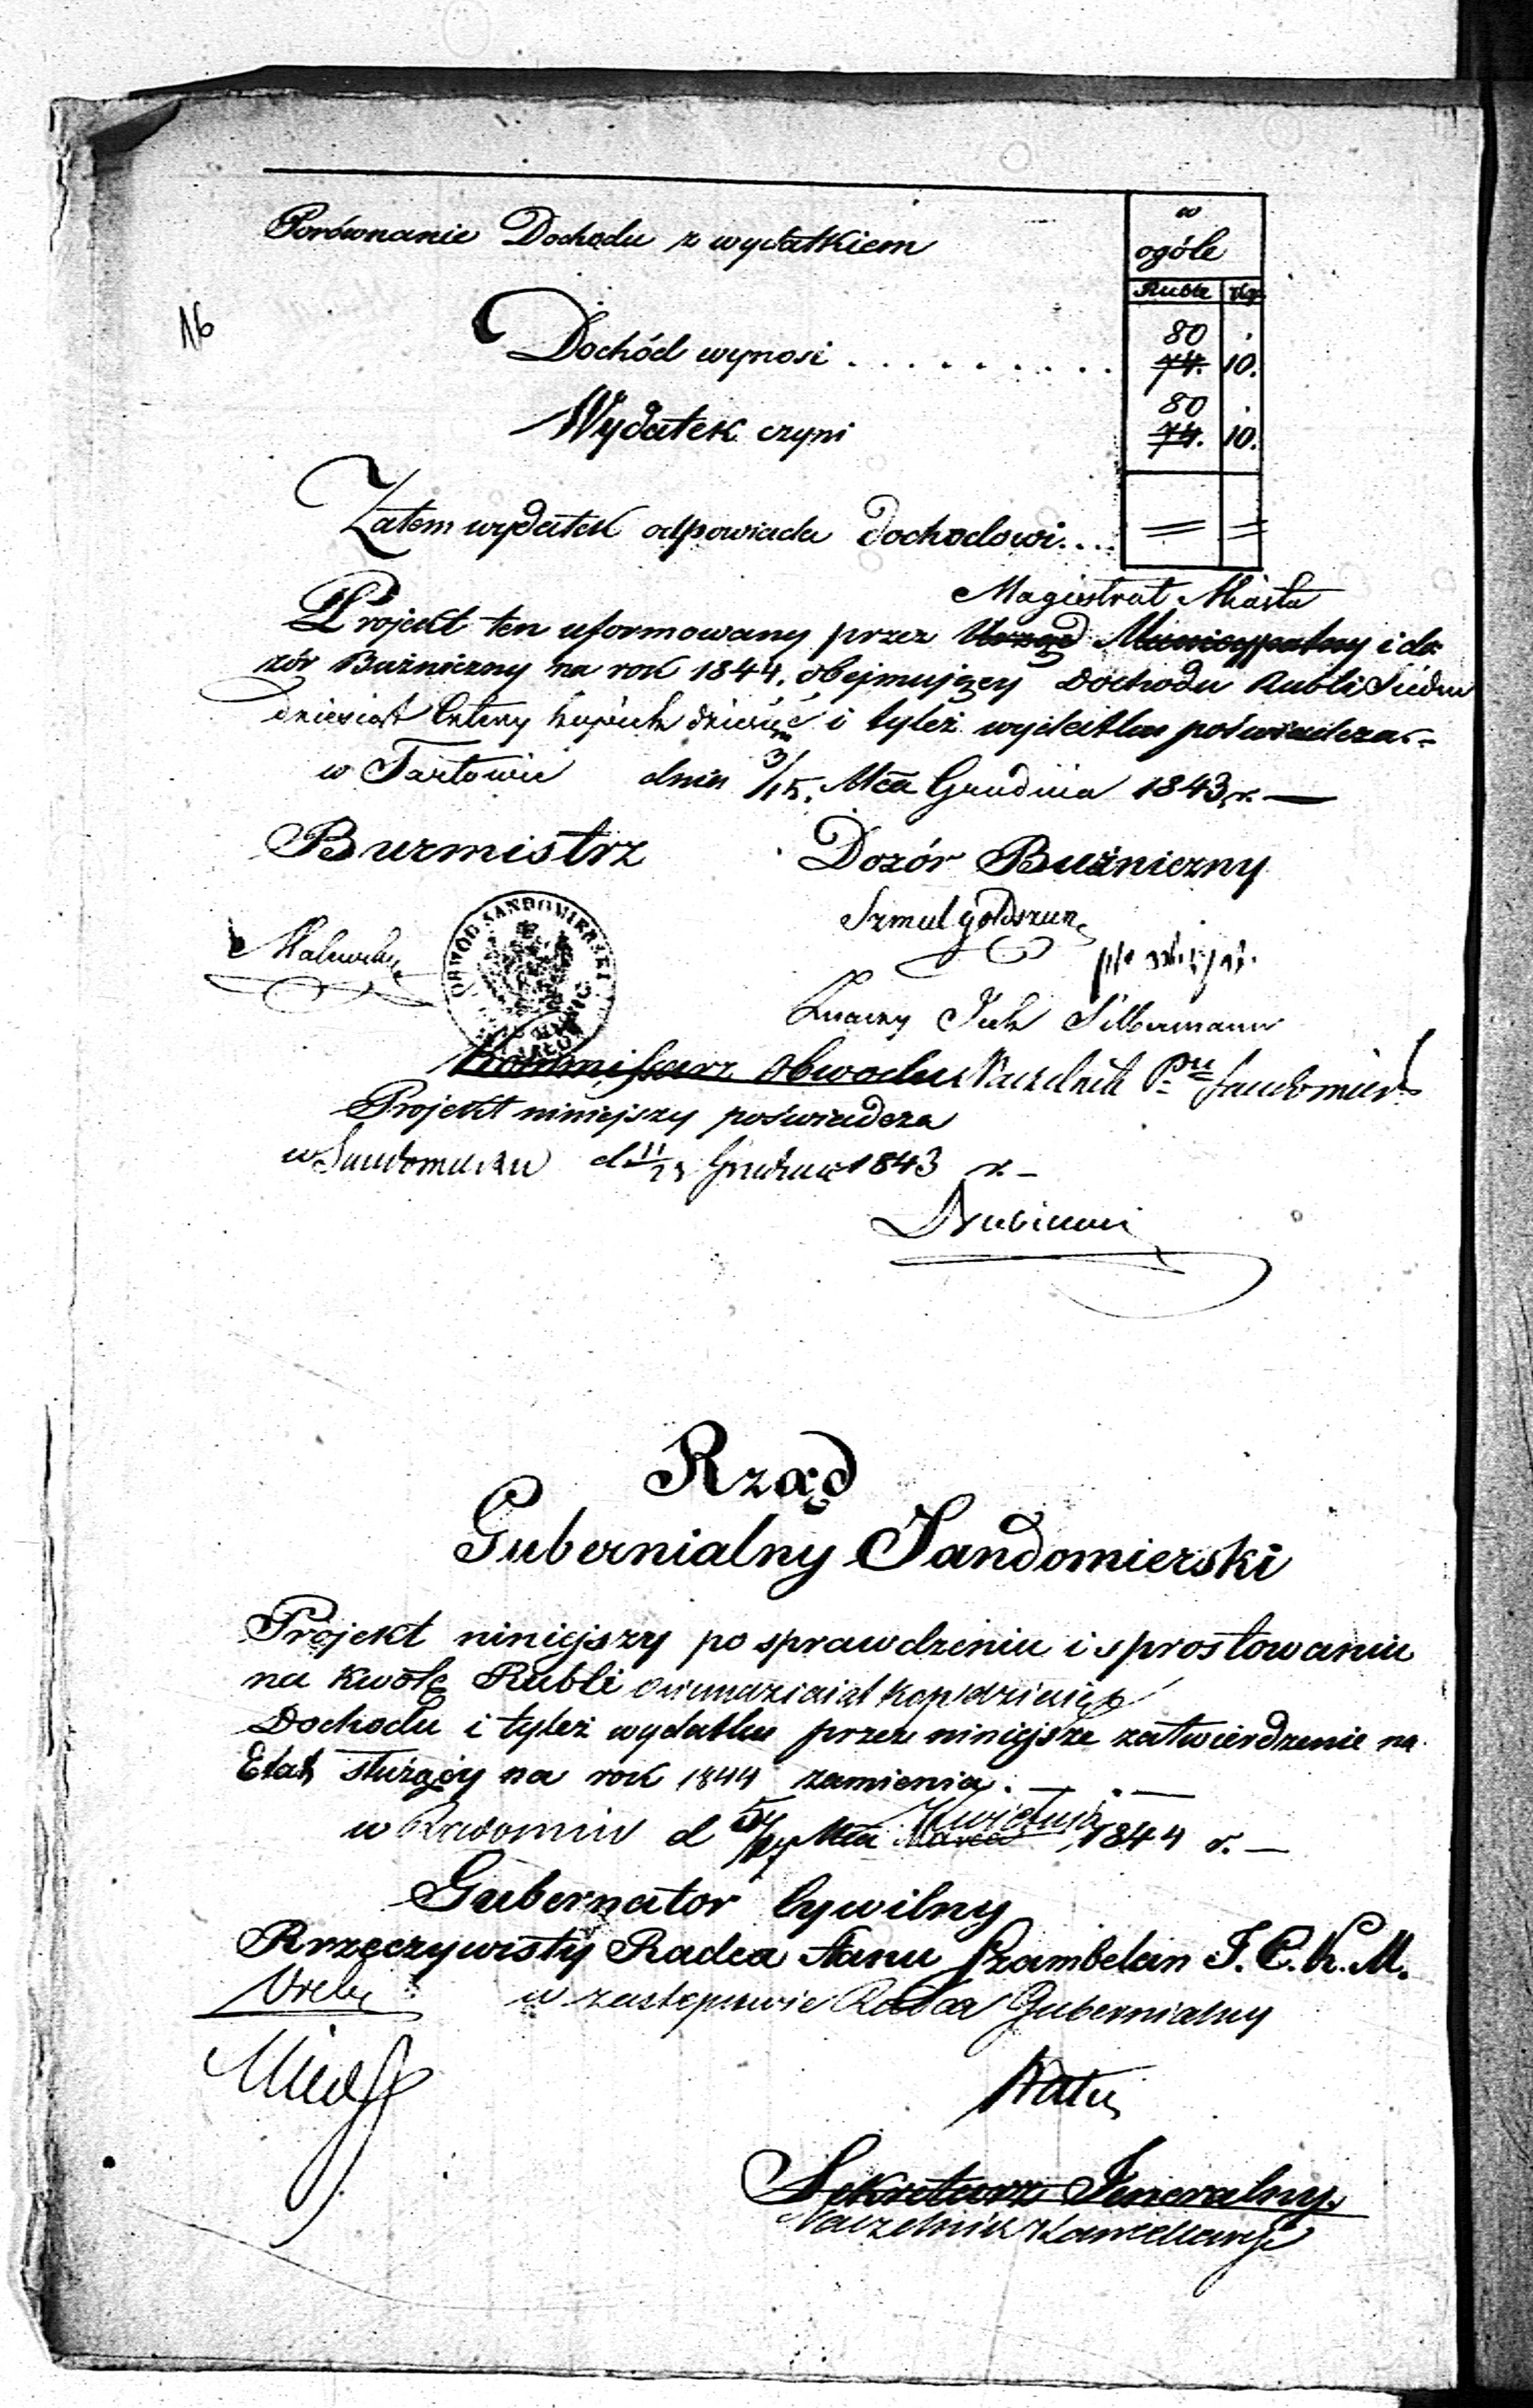 w
ogóle
Porównanie Dochodu z wydatkiem
Ruble kop
16
80 .
Dochód wynosi . . . . . . . . . 74. 10.
80 .
Wydatek czyni 74. 10.
Zatem wydatek odpowiada dochodowi....
Magistrat Miasta
Projekt ten uformowany przez Urząd Municypalny i do
zór Buźniczny na rok 1844. obejmujący Dochodu Rubli Siedm
dziesiąt Cztery kopiiek dziesięć i tyleż wydatku poświadcza.-
w Tarłowie dnia 3/15. Mca Grudnia 1843 r. —
Burmistrz Dozór Buźniczny
OBWÓD SANDOMIERSKI
Szmul goldszun
Icek Silbermann
Kommissarz Obwodu Naczelnik Ptu Sandomier
Projekt niniejszy poświadcza
w Sandomierzu d. 11/23 Grudnia 1843 r. —
Rząd
Gubernialny Sandomierski
Projekt niniejszy po sprawdzeniu i sprostowaniu
na kwotę Rubli
Dochodu i tyleż wydatku przez niniejsze zatwierdzenie na
Etat służący na rok 1844 zamienia. — . —
Kwietnia
w Radomiu d Mca Marca 1844 r. —
Gubernator Cywilny
Rzeczywisty Radca Stanu Szambelan J. C. K. M.
w zastępstwie Radca Gubernialny
Sekretarz Jeneralny.
Naczelnik Kancellaryi